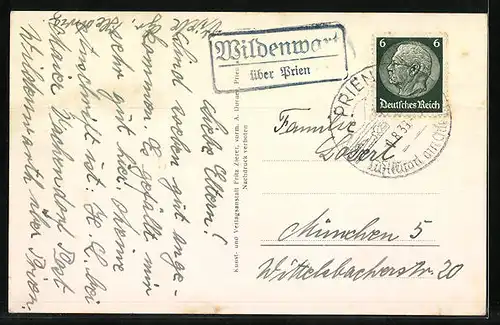 Liebe Eltern!
Sind soeben gut ange-
kommen. Es gefällt mir
sehr gut hier. Meine
Anschrift ist: H. L. bei
Maier Wachendorf Post
Wildenwarth über Prien.
Viele
Gr.
Kunst- und Verlagsanstalt Fritz Zierer, norm. A. Dumm, Prien
Nachdruck verboten
Wildenwart
über Prien
PRIEN
6 6
Deutsches Reich
Familie
Losert
München 5
Wittelsbacherstr 20